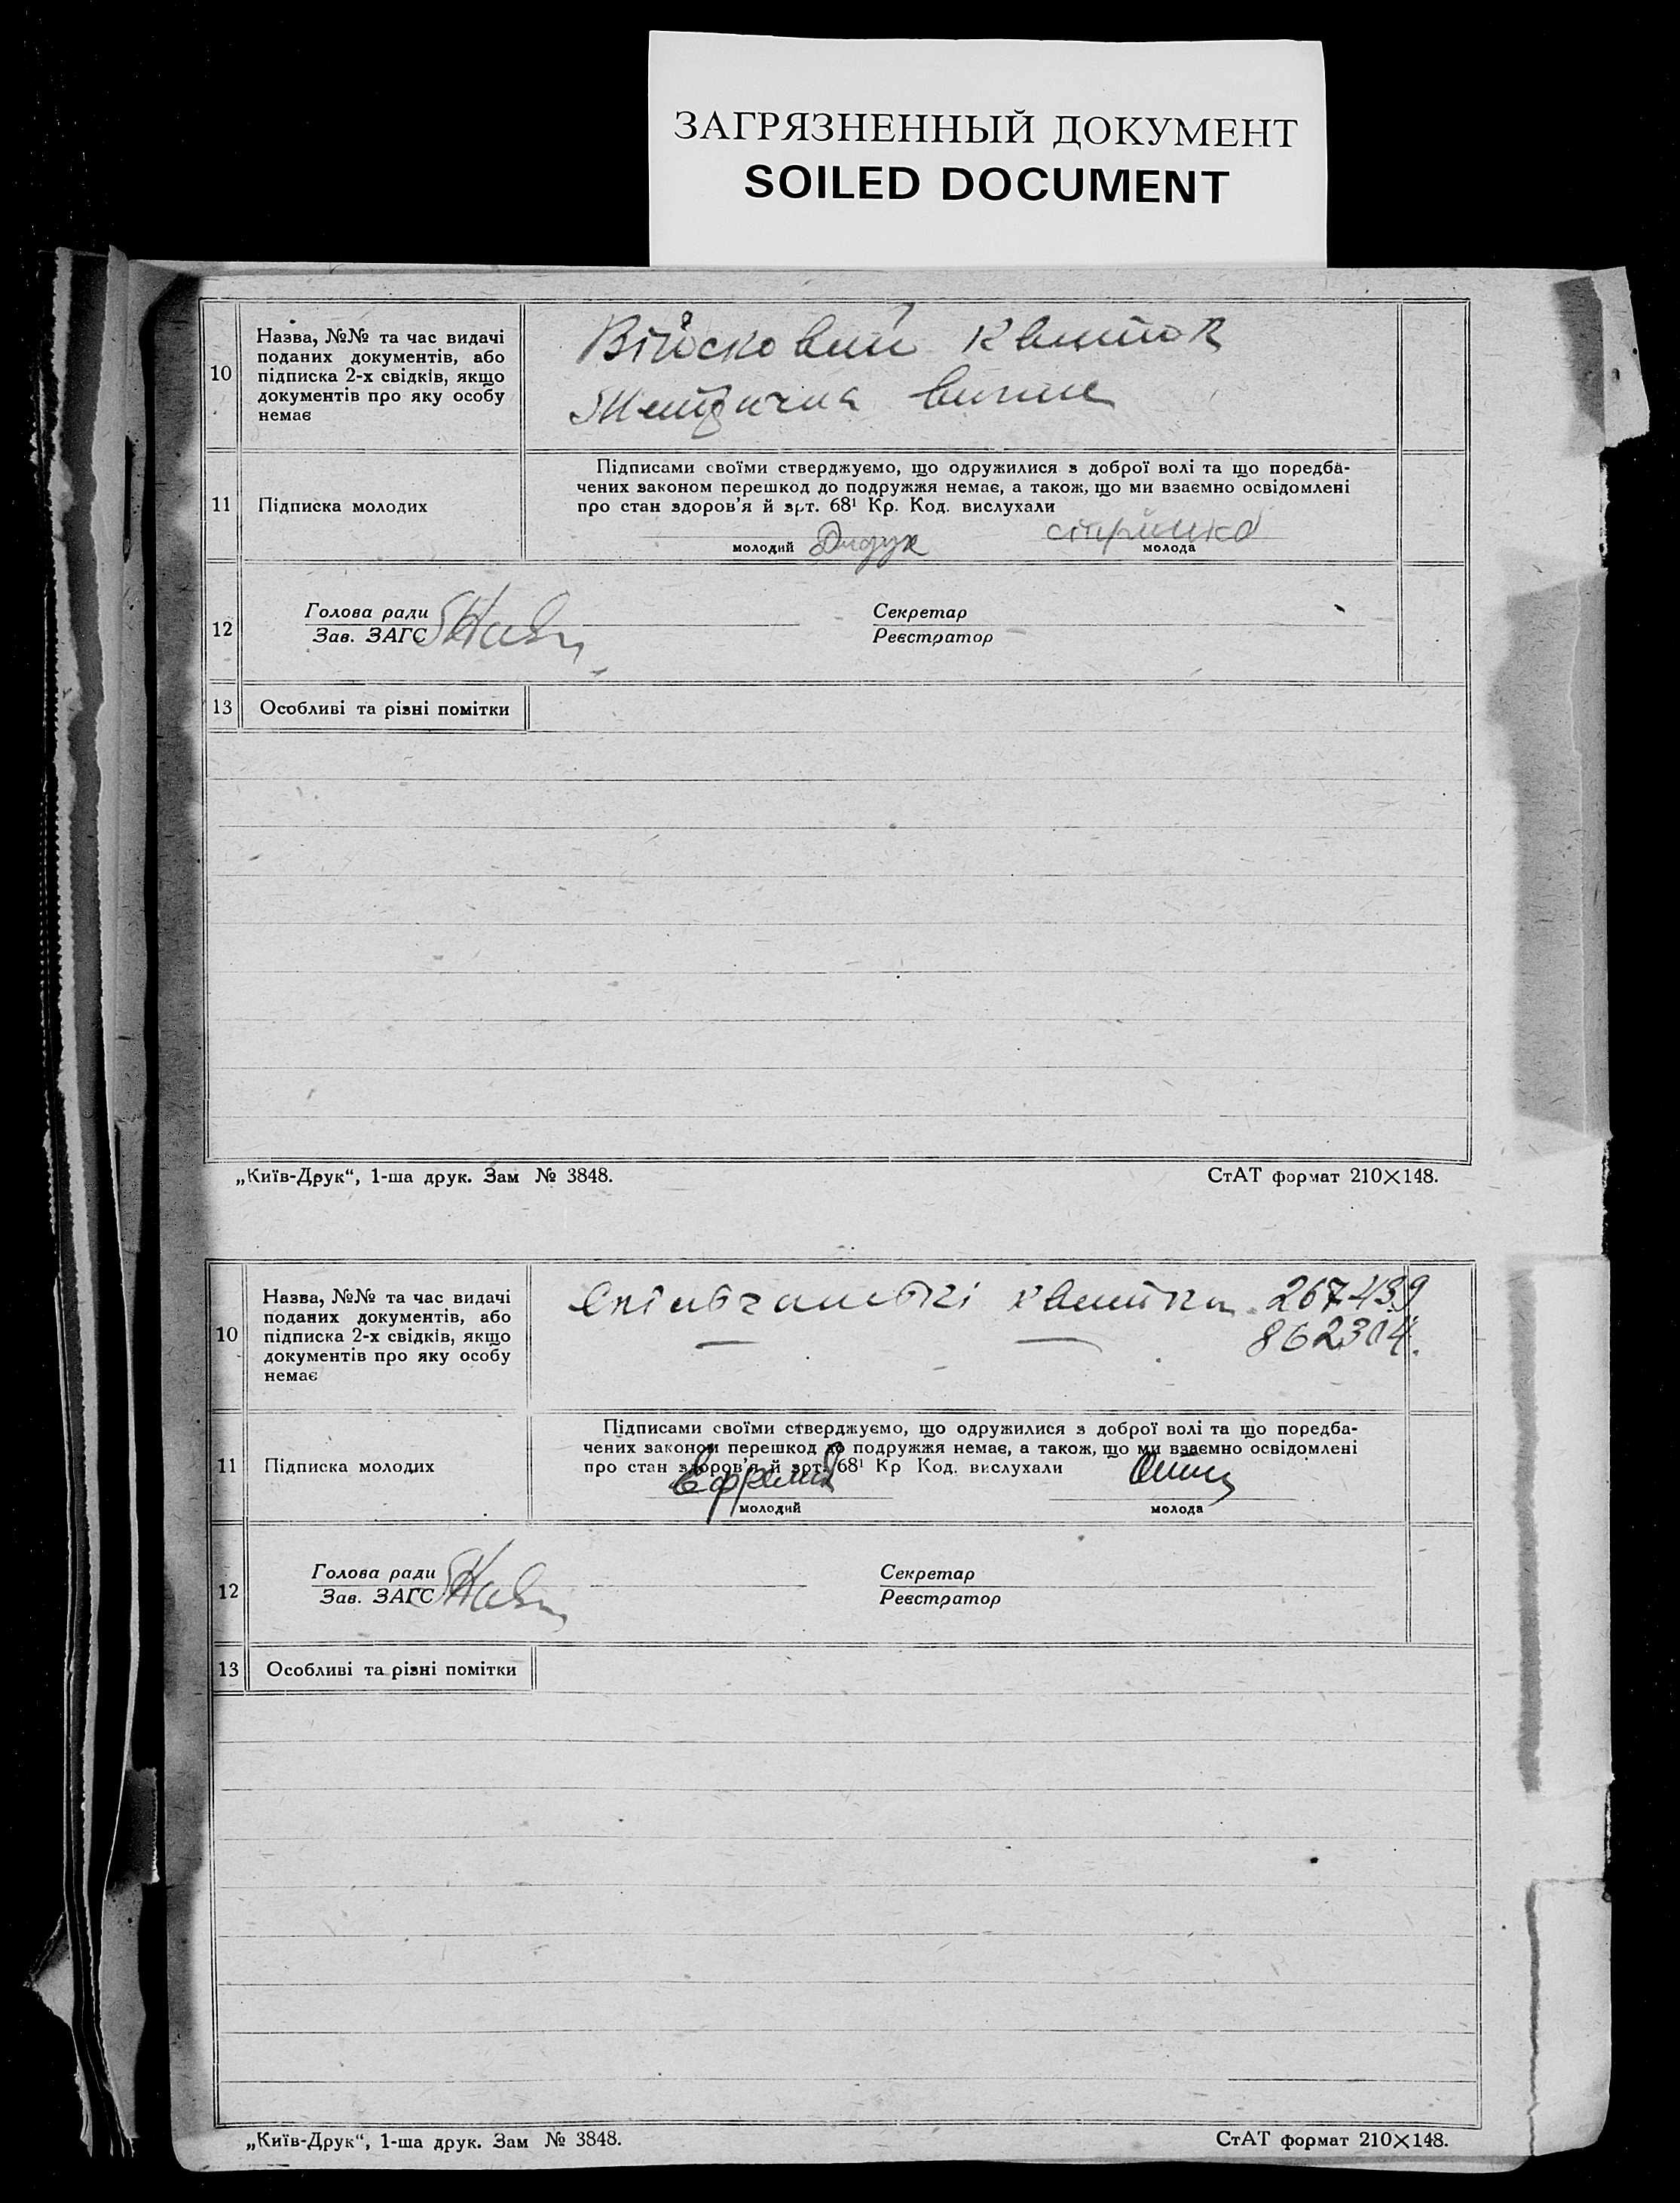 ЗАГРЯЗНЕННЫЙ ДОКУМЕНТ
SOILED DOCUMENT
10
Назва, №№ та час видачі
поданих документів, або
підписка 2-х свідків, якщо
документів про яку особу
немає
Військовий квиток
Метрична
11
Підписка молодих
Підписами своїми стверджуємо, що одружилися з доброї волі та що поредба-
чених законом перешкод до подружжя немає, а також, що ми взаємно освідомлені
про стан здоров'я й арт. 68¹ Кр. Код. вислухали
молодий Дидух
молода
12
Голова ради
Зав. ЗАГС
Секретар
Реєстратор
13
Особливі та різні помітки
„Київ-Друк“, 1-ша друк. Зам № 3848.
СтАТ формат 210×148.
10
Назва, №№ та час видачі
поданих документів, або
підписка 2-х свідків, якщо
документів про яку особу
немає
квитка 267439
862304.
11
Підписка молодих
Підписами своїми стверджуємо, що одружилися з доброї волі та що поредба-
чених законом перешкод до подружжя немає, а також, що ми взаємно освідомлені
про стан здоров'я й арт. 68¹ Кр Код. вислухали
молодий
молода
12
Голова ради
Зав. ЗАГС
Секретар
Реєстратор
13
Особливі та різні помітки
„Київ-Друк“, 1-ша друк. Зам № 3848.
СтАТ формат 210×148.